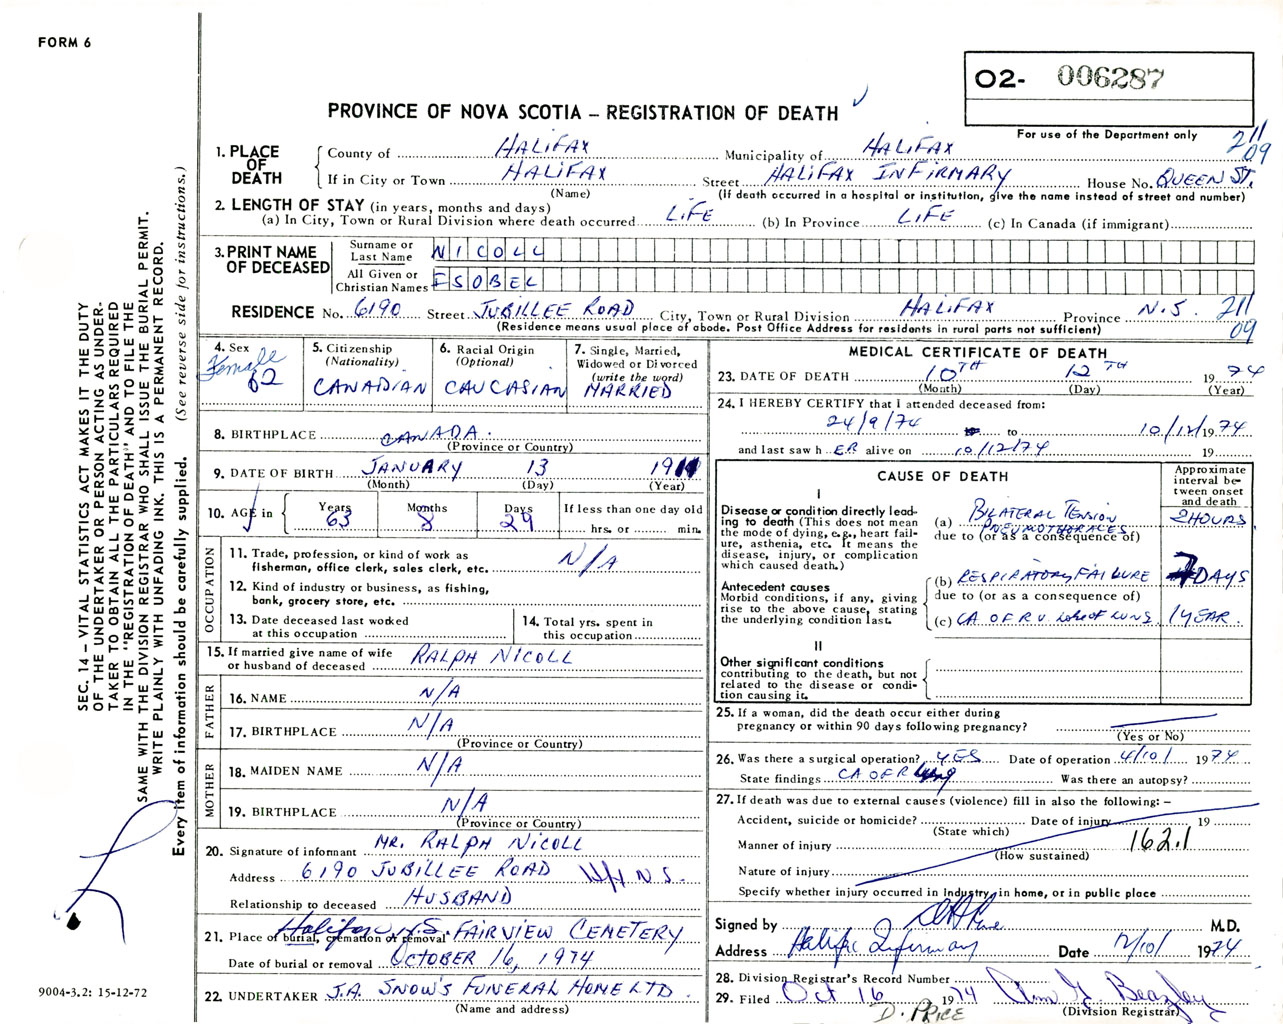 FORM 6
O2- 006287
PROVINCE OF NOVA SCOTIA – REGISTRATION OF DEATH
For use of the Department only
211
09
1. PLACE OF DEATH
County of HALIFAX Municipality of HALIFAX
If in City or Town HALIFAX Street HALIFAX INFIRMARY House No. QUEEN ST.
(Name) (If death occurred in a hospital or institution, give the name instead of street and number)
2. LENGTH OF STAY (in years, months and days)
(a) In City, Town or Rural Division where death occurred LIFE (b) In Province LIFE (c) In Canada (if immigrant)
3. PRINT NAME OF DECEASED
Surname or Last Name NICOLL
All Given or Christian Names ESOBEL
RESIDENCE No. 6190 Street JUBILLEE ROAD City, Town or Rural Division HALIFAX Province N.S. 211
09
(Residence means usual place of abode. Post Office Address for residents in rural parts not sufficient)
4. Sex
Female
62
5. Citizenship
(Nationality)
CANADIAN
6. Racial Origin
(Optional)
CAUCASIAN
7. Single, Married,
Widowed or Divorced
(write the word)
MARRIED
8. BIRTHPLACE CANADA.
(Province or Country)
9. DATE OF BIRTH JANUARY 13 1911
(Month) (Day) (Year)
10. AGE in Years 63 Months 8 Days 29 If less than one day old
hrs. or min.
OCCUPATION
11. Trade, profession, or kind of work as
fisherman, office clerk, sales clerk, etc. N/A
12. Kind of industry or business, as fishing,
bank, grocery store, etc.
13. Date deceased last worked
at this occupation
14. Total yrs. spent in
this occupation
15. If married give name of wife
or husband of deceased RALPH NICOLL
FATHER
16. NAME N/A
17. BIRTHPLACE N/A
(Province or Country)
MOTHER
18. MAIDEN NAME N/A
19. BIRTHPLACE N/A
(Province or Country)
20. Signature of informant MR. RALPH NICOLL
Address 6190 JUBILLEE ROAD N.S.
Relationship to deceased HUSBAND
21. Place of burial, cremation or removal Halifax N.S. FAIRVIEW CEMETERY
Date of burial or removal OCTOBER 16, 1974
22. UNDERTAKER J.A. SNOW'S FUNERAL HOME LTD.
(Name and address)
MEDICAL CERTIFICATE OF DEATH
23. DATE OF DEATH 10TH 12TH 1974
(Month) (Day) (Year)
24. I HEREBY CERTIFY that I attended deceased from:
24/9/74 to 10/12/1974
and last saw h ER alive on 10/12/74 19
CAUSE OF DEATH
Approximate
interval be-
tween onset
and death
I
Disease or condition directly lead-
ing to death (This does not mean
the mode of dying, e.g., heart fail-
ure, asthenia, etc. It means the
disease, injury, or complication
which caused death.)
(a) BILATERAL TENSION PNEUMOTHORACES 2 HOURS
due to (or as a consequence of)
Antecedent causes
Morbid conditions, if any, giving
rise to the above cause, stating
the underlying condition last.
(b) RESPIRATORY FAILURE 7 DAYS
due to (or as a consequence of)
(c) CA OF R U LOBE OF LUNG 1 YEAR
II
Other significant conditions
contributing to the death, but not
related to the disease or condi-
tion causing it.
25. If a woman, did the death occur either during
pregnancy or within 90 days following pregnancy?
(Yes or No)
26. Was there a surgical operation? YES Date of operation 4/10/ 1974
State findings CA OF R Lung Was there an autopsy?
27. If death was due to external causes (violence) fill in also the following: –
Accident, suicide or homicide? Date of injury 19
(State which)
Manner of injury 162.1
(How sustained)
Nature of injury
Specify whether injury occurred in Industry, in home, or in public place
Signed by M.D.
Address Halifax Infirmary Date 12/10/ 1974
28. Division Registrar's Record Number
29. Filed Oct 16 1974
(Division Registrar)
D. PRICE
SEC. 14 – VITAL STATISTICS ACT MAKES IT THE DUTY
OF THE UNDERTAKER OR PERSON ACTING AS UNDER-
TAKER TO OBTAIN ALL THE PARTICULARS REQUIRED
IN THE "REGISTRATION OF DEATH" AND TO FILE THE
SAME WITH THE DIVISION REGISTRAR WHO SHALL ISSUE THE BURIAL PERMIT.
WRITE PLAINLY WITH UNFADING INK. THIS IS A PERMANENT RECORD.
Every item of information should be carefully supplied. (See reverse side for instructions.)
9004-3.2: 15-12-72